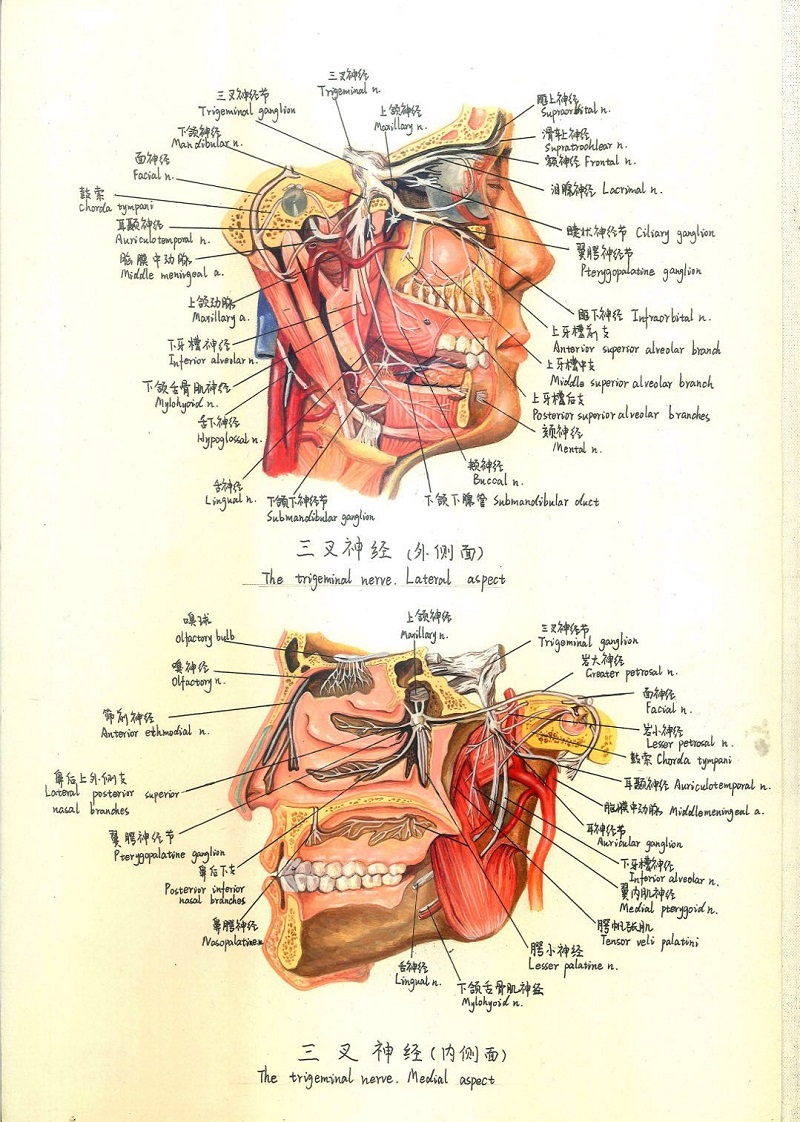 三叉神经
Trigeminal n.
三叉神经节
Trigeminal ganglion
上颌神经
Maxillary n.
下颌神经
Mandibular n.
面神经
Facial n.
鼓索
Chorda tympani
耳颞神经
Auriculotemporal n.
脑膜中动脉
Middle meningeal a.
上颌动脉
Maxillary a.
下牙槽神经
Inferior alveolar n.
下颌舌骨肌神经
Mylohyoid n.
舌下神经
Hypoglossal n.
舌神经
Lingual n.
下颌下神经节
Submandibular ganglion
眶上神经
Supraorbital n.
滑车上神经
Supratrochlear n.
额神经 Frontal n.
泪腺神经 Lacrimal n.
睫状神经节 Ciliary ganglion
翼腭神经节
Pterygopalatine ganglion
眶下神经 Infraorbital n.
上牙槽前支
Anterior superior alveolar branch
上牙槽中支
Middle superior alveolar branch
上牙槽后支
Posterior superior alveolar branches
颏神经
Mental n.
颊神经
Buccal n.
下颌下腺管 Submandibular duct
三叉神经(外侧面)
The trigeminal nerve. Lateral aspect
嗅球
Olfactory bulb
嗅神经
Olfactory n.
筛前神经
Anterior ethmodial n.
鼻后上外侧支
Lateral posterior superior
nasal branches
翼腭神经节
Pterygopalatine ganglion
鼻后下支
Posterior inferior
nasal branches
鼻腭神经
Nasopalatine n.
上颌神经
Maxillary n.
三叉神经节
Trigeminal ganglion
岩大神经
Greater petrosal n.
面神经
Facial n.
岩小神经
Lesser petrosal n.
鼓索 Chorda tympani
耳颞神经 Auriculotemporal n.
脑膜中动脉 Middlemeningeal a.
耳神经节
Auricular ganglion
下牙槽神经
Inferior alveolar n.
翼内肌神经
Medial pterygoid n.
腭帆张肌
Tensor veli palatini
腭小神经
Lesser palatine n.
舌神经
Lingual n.
下颌舌骨肌神经
Mylohyoid n.
三叉神经(内侧面)
The trigeminal nerve. Medial aspect